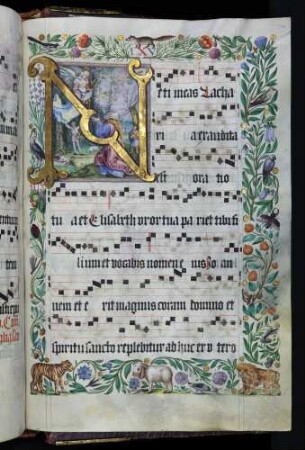 N
e ti meas Zacha
ri a exaudita
est ora tio
tu a et Elisabeth uxor tua pa riet tibi fi
lium et vocabis nomen e ius Jo an
nem et e rit magnus coram domino et
spiritu sancto replebitur ad huc ex u tero